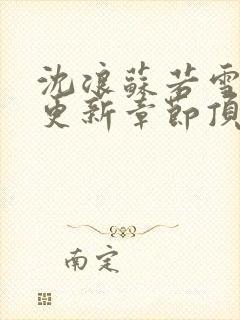 沈浪蘇若雪
更新章節頂
南定